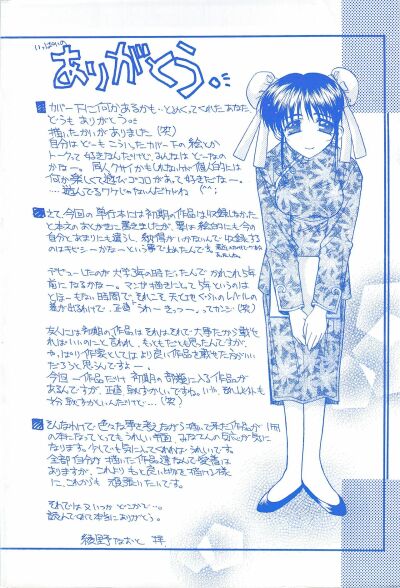 いっぱいの
ありがとう。
カバー下に何かあるかも…とめくってくれたあなた
どうもありがとう。
描いたかいがありました(笑)
自分はどーもこういったカバー下の絵とか
トークって好きなんだけど、みんなはどーなの
かなー。同人クサイかもしれないけど、個人的には
何か楽しくて遊びゴコロがあって好きだなー。
…遊んでるワケじゃないんだけどね (^^;
さて、今回の単行本には初期の作品は収録しなかった
と本文のおとがきに書きましたが、実は絵的にも今の
自分とあまりにも違うし、納得がいかないんで収録する
のはキビシーかなーという事で止めたんです。
デビューしたのが大学3年の時だったんで かれこれ5年
前になるかなー。マンガ描きにとって5年というのは
とほーもない時間で、それこそ天と地ぐらいのレベルの
差が出るわけで、正直「うわー きっつー。」ってカンジ(笑)
友人には初期の作品はそれはそれで大事だから載せ
ればいいのにと言われ、もっともだとも思ったんですが、
やっぱり作家としてはより良い作品を載せた方がいい
だろうと思うんですよー。
今回一作品だけ初期の部類に入る作品が
あるんですが、正直恥ずかしいですね。いや、それ以外も
十分恥ずかしいんだけど…(笑)
そんなわけで色々な事を考えながら描いて来た作品が1冊
の本になってとってもうれしい半面、みなさんの反応が気に
なります。少しでも気に入ってくれればうれしいです。
全部自分が描いた作品達なんで愛着は
ありますが、これよりもっと良い物を描ける様
に、これからも頑張りたいです。
それではまたいつかどこかで…。
読んでくれて本当にありがとう。
綾野なおと 拝